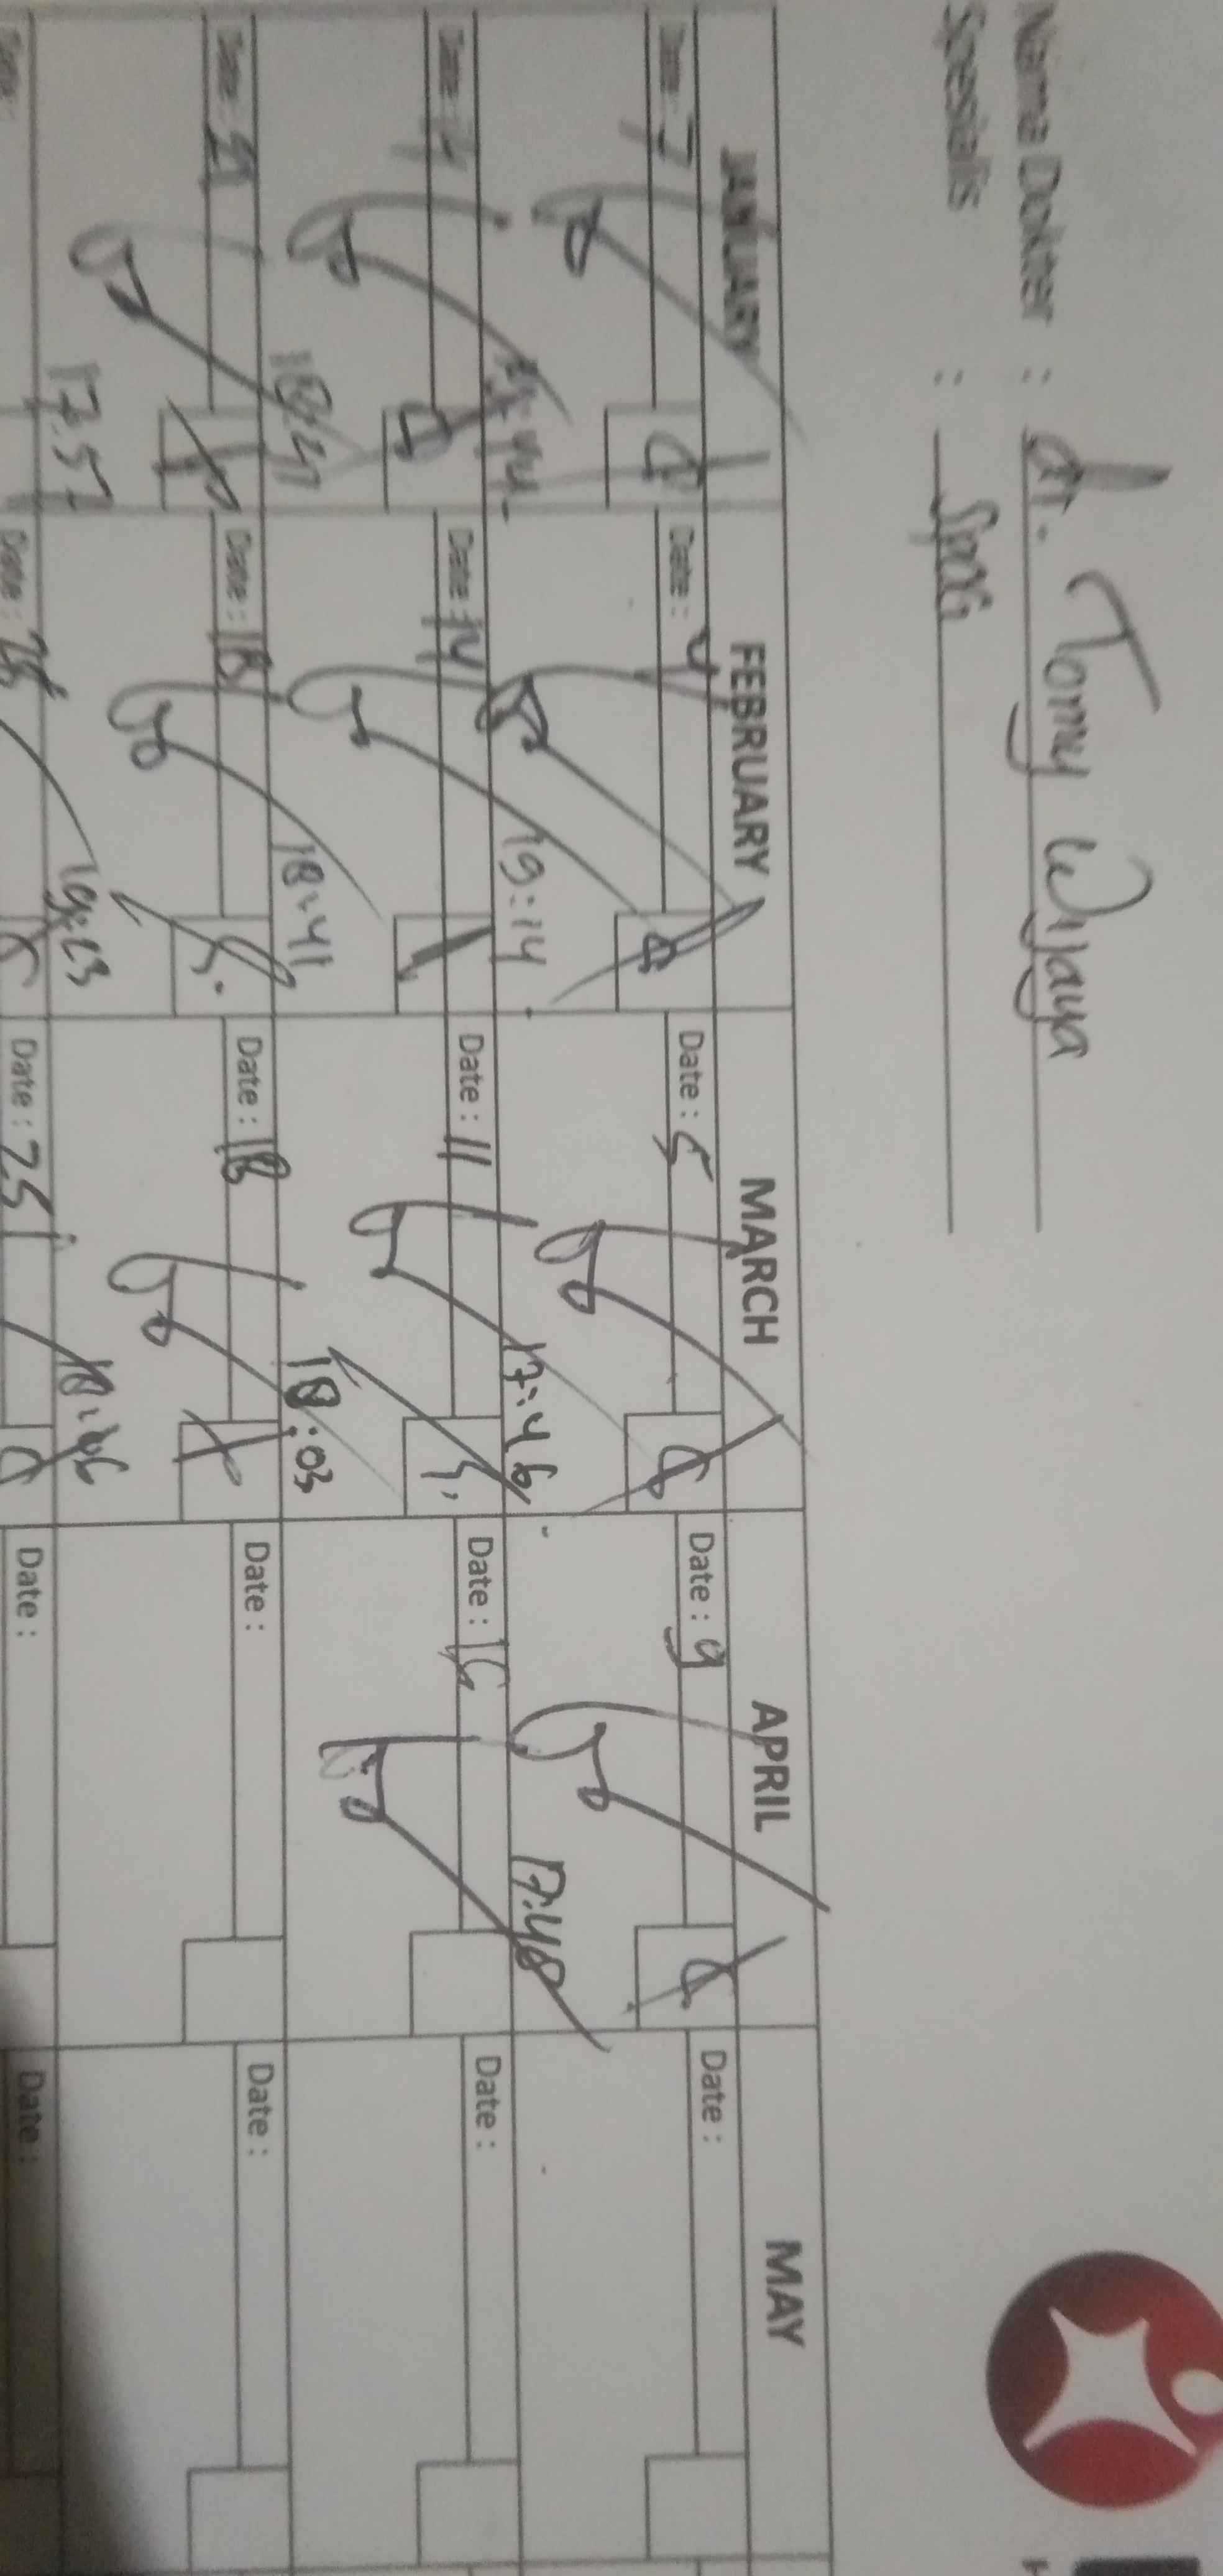 Nama Dokter : dr. Tomy Wijaya
Spesialis : SpOG
JANUARY FEBRUARY MARCH APRIL MAY
Date : 7 Date : 4 Date : 5 Date : 9 Date :
19:14 17:46 17:48
Date : 14 Date : 14 Date : 11 Date : 16 Date :
18:41 18:03
Date : Date : 18 Date : 18 Date : Date :
17.57 19:23
Date : Date : 25 Date : 25 Date : Date :